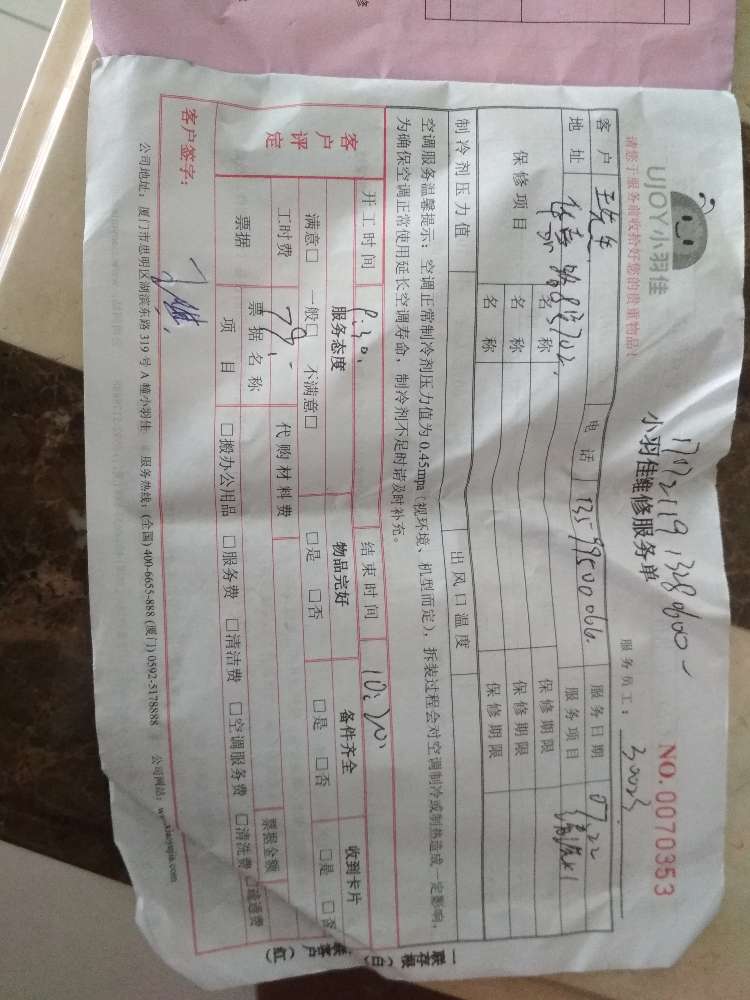 UJOY小羽佳
请您于服务前收拾好您的贵重物品!
小羽佳维修服务单
NO.0070353
服务员工:
客 户 王先生 电 话 服务日期 07.22
地 址 服务项目
保修项目 名 称 保修期限
名 称 保修期限
名 称 保修期限
制冷剂压力值 出风口温度
空调服务温馨提示: 空调正常制冷剂压力值为 0.45mpa (视环境、机型而定), 拆装过程会对空调制冷或制热造成一定影响,
为确保空调正常使用延长空调寿命, 制冷剂不足时请及时补充。
开工时间 结束时间 10:20
客户评定 服务态度 物品完好 备件齐全 收到卡片
满意□ 一般□ 不满意□ □是 □否 □是 □否 □是 □否
工时费 79 代购材料费 票据金额
票据 票据名称
项 目 □搬办公用品 □服务费 □清洁费 □空调服务费 □清洗费 □疏通费
客户签字:
公司地址: 厦门市思明区湖滨东路 319 号 A 幢小羽佳 服务热线: (全国) 400-6655-888 (厦门) 0592-5178888 公司网站:
一联存根 (白) 客户 (红)